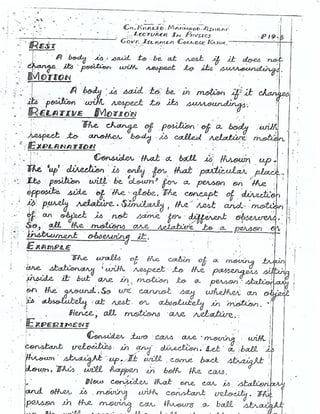 CH. KHALID MAHMOOD
LECTURER IN PHYSICS
GOVT. ISLAMIA COLLEGE
P 19-5
REST
A body is said to be at rest if it does not
change its position with respect to its surroundings.
MOTION
A body is said to be in motion if it changes
its position with respect to its surroundings.
RELATIVE MOTION
The change of position of a body with
respect to another body is called relative motion
EXPLANATION
Consider that a ball is thrown up.
The 'up' direction is only for that particular place.
Its position will be 'down' for a person on the
opposite side of the globe. The concept of direction
is purely relative. Similarly, the rest and motion
of an object is not same for different observers.
So, all the motions are relative to a person or
instrument observing it.
EXAMPLE
The walls of the cabin of a moving train
are stationary with respect to the passengers sitting
inside it but are in motion to a person stationary
on the ground. So we cannot say whether an object
is absolutely at rest or absolutely in motion.
Hence, all motions are relative.
EXPERIMENT
Consider two cars are moving with
constant velocities in any direction. Let a ball is
thrown straight up. It will come back straight
down. This will happen in both the cars.
Now consider that one car is stationary
and other is moving with constant velocity. The
person in the moving car throws a ball straight